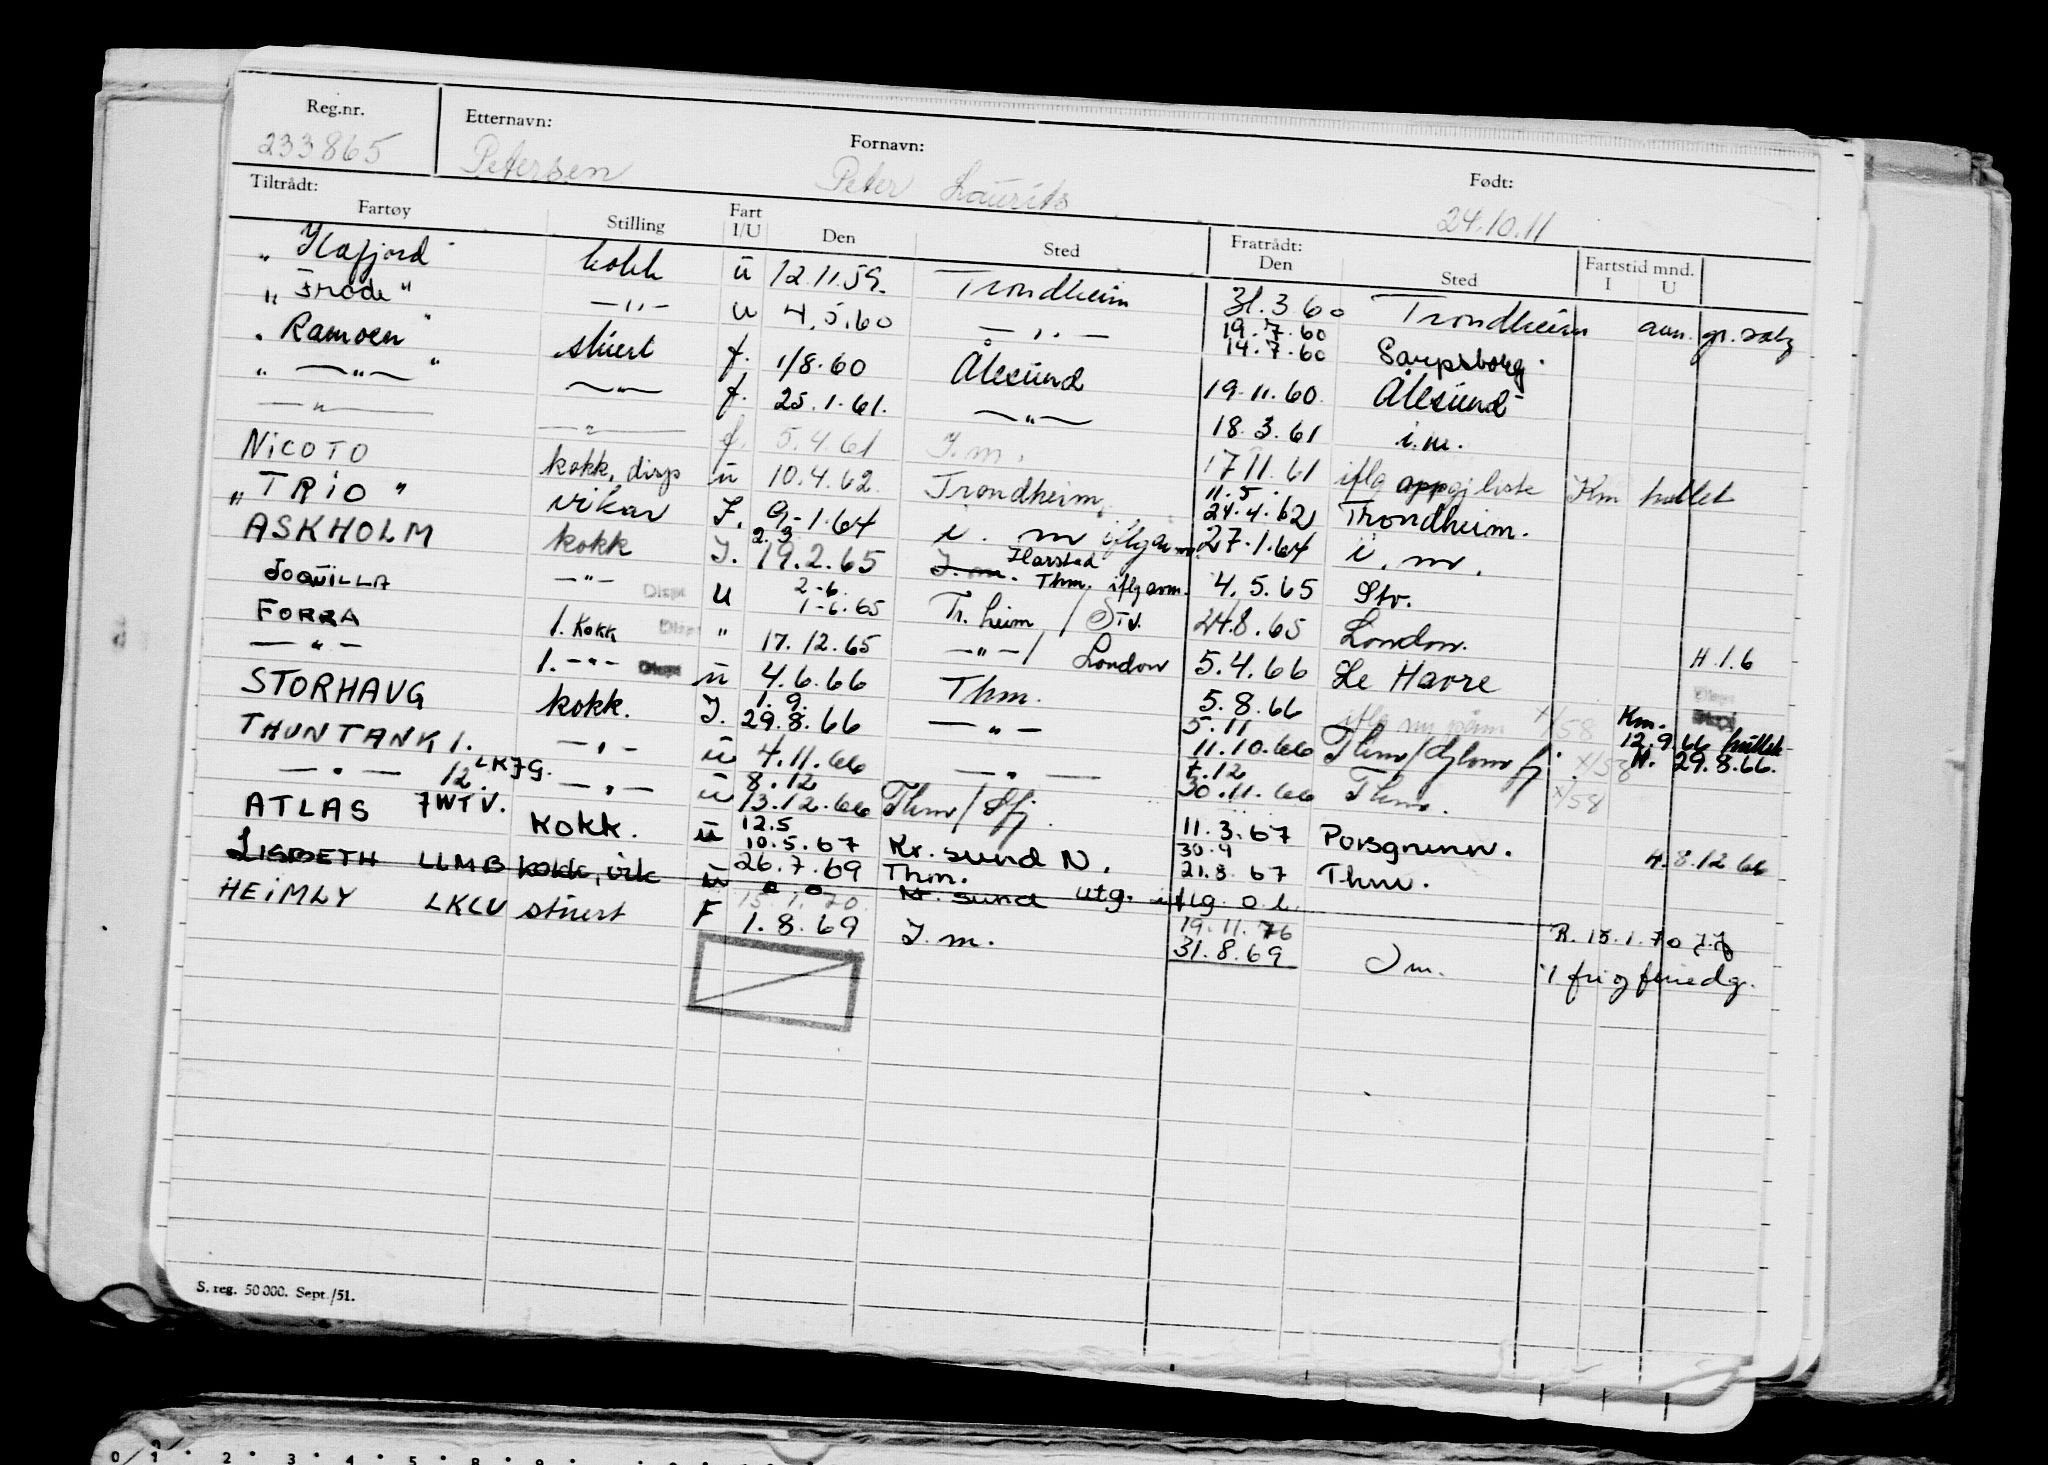 Reg.nr. Etternavn: Fornavn: Født:
233865 Petersen Peter Laurits 24.10.11
Tiltrådt: Fratrådt: Fartstid mnd.
Fartøy Stilling Fart I/U Den Sted Den Sted I U
„ Ilafjord " kokk u 12.11.59. Trondheim 31.3 60 Trondheim
„ Frode " — „ — u 4.5.60 — „ — 19.7.60 14.7.60 Sarpsborg.
„ Ramoen " stuert f. 1/8.60 Ålesund 19.11.60. Ålesund
„ — „ — " — „ — f. 25.1.61. — „ — 18.3.61 i.m.
— „ — — „ — f. 5.4.61 I.m. 17 11.61 iflg oppgj liste Km hullet
NICOTO kokk, disp u 10.4.62. Trondheim 11.5. 24.4.62 Trondheim.
„ TRIO " vikar I. 9-1.64 i. m 27.1.64 i. m.
ASKHOLM kokk I. 2.3 19.2.65 I. m. Harstad Thm. iflg avm. 4.5.65 Stv.
JOQUILLA — " — Disp U 2-6. 1-6.65 Tr.heim / Stv. 24.8.65 London.
FORRA 1. Kokk Disp " 17.12.65 — " — / London 5.4.66 Le Havre H.1.6
— " — 1. — " — Disp u 4.6.66 Thm. 5.8.66 iflg x/58 Km. 12.9 66 hullet
STORHAUG kokk. I. 1.9. 29.8.66 — " — 5.11 11.10.66 Thm/ x/58 29.8.66.
THUNTANK 1. — „ — u 4.11.66 — „ — 30.11.66 Thm. x/58
— " — 12. LKJG. — „ — u 8.12 13.12.66 Thm/ 11.3.67 Porsgrunn. 8.12 66
ATLAS JWTV. kokk. u 12.5 10.5.67 Kr.sund N. 30.9 21.8.67 Thm.
LISBETH LLMB kokk, vik u 26.7.69 Thm. Kr.sund utg. iflg. o.l.
15.1.70. 19.11.76 R. 15.1.70
HEIMLY LKLV stuert F 1.8.69 I.m. 31.8.69 I m.
S. reg. 50 000. Sept./51.
0 1 2 3 4 5 8 9